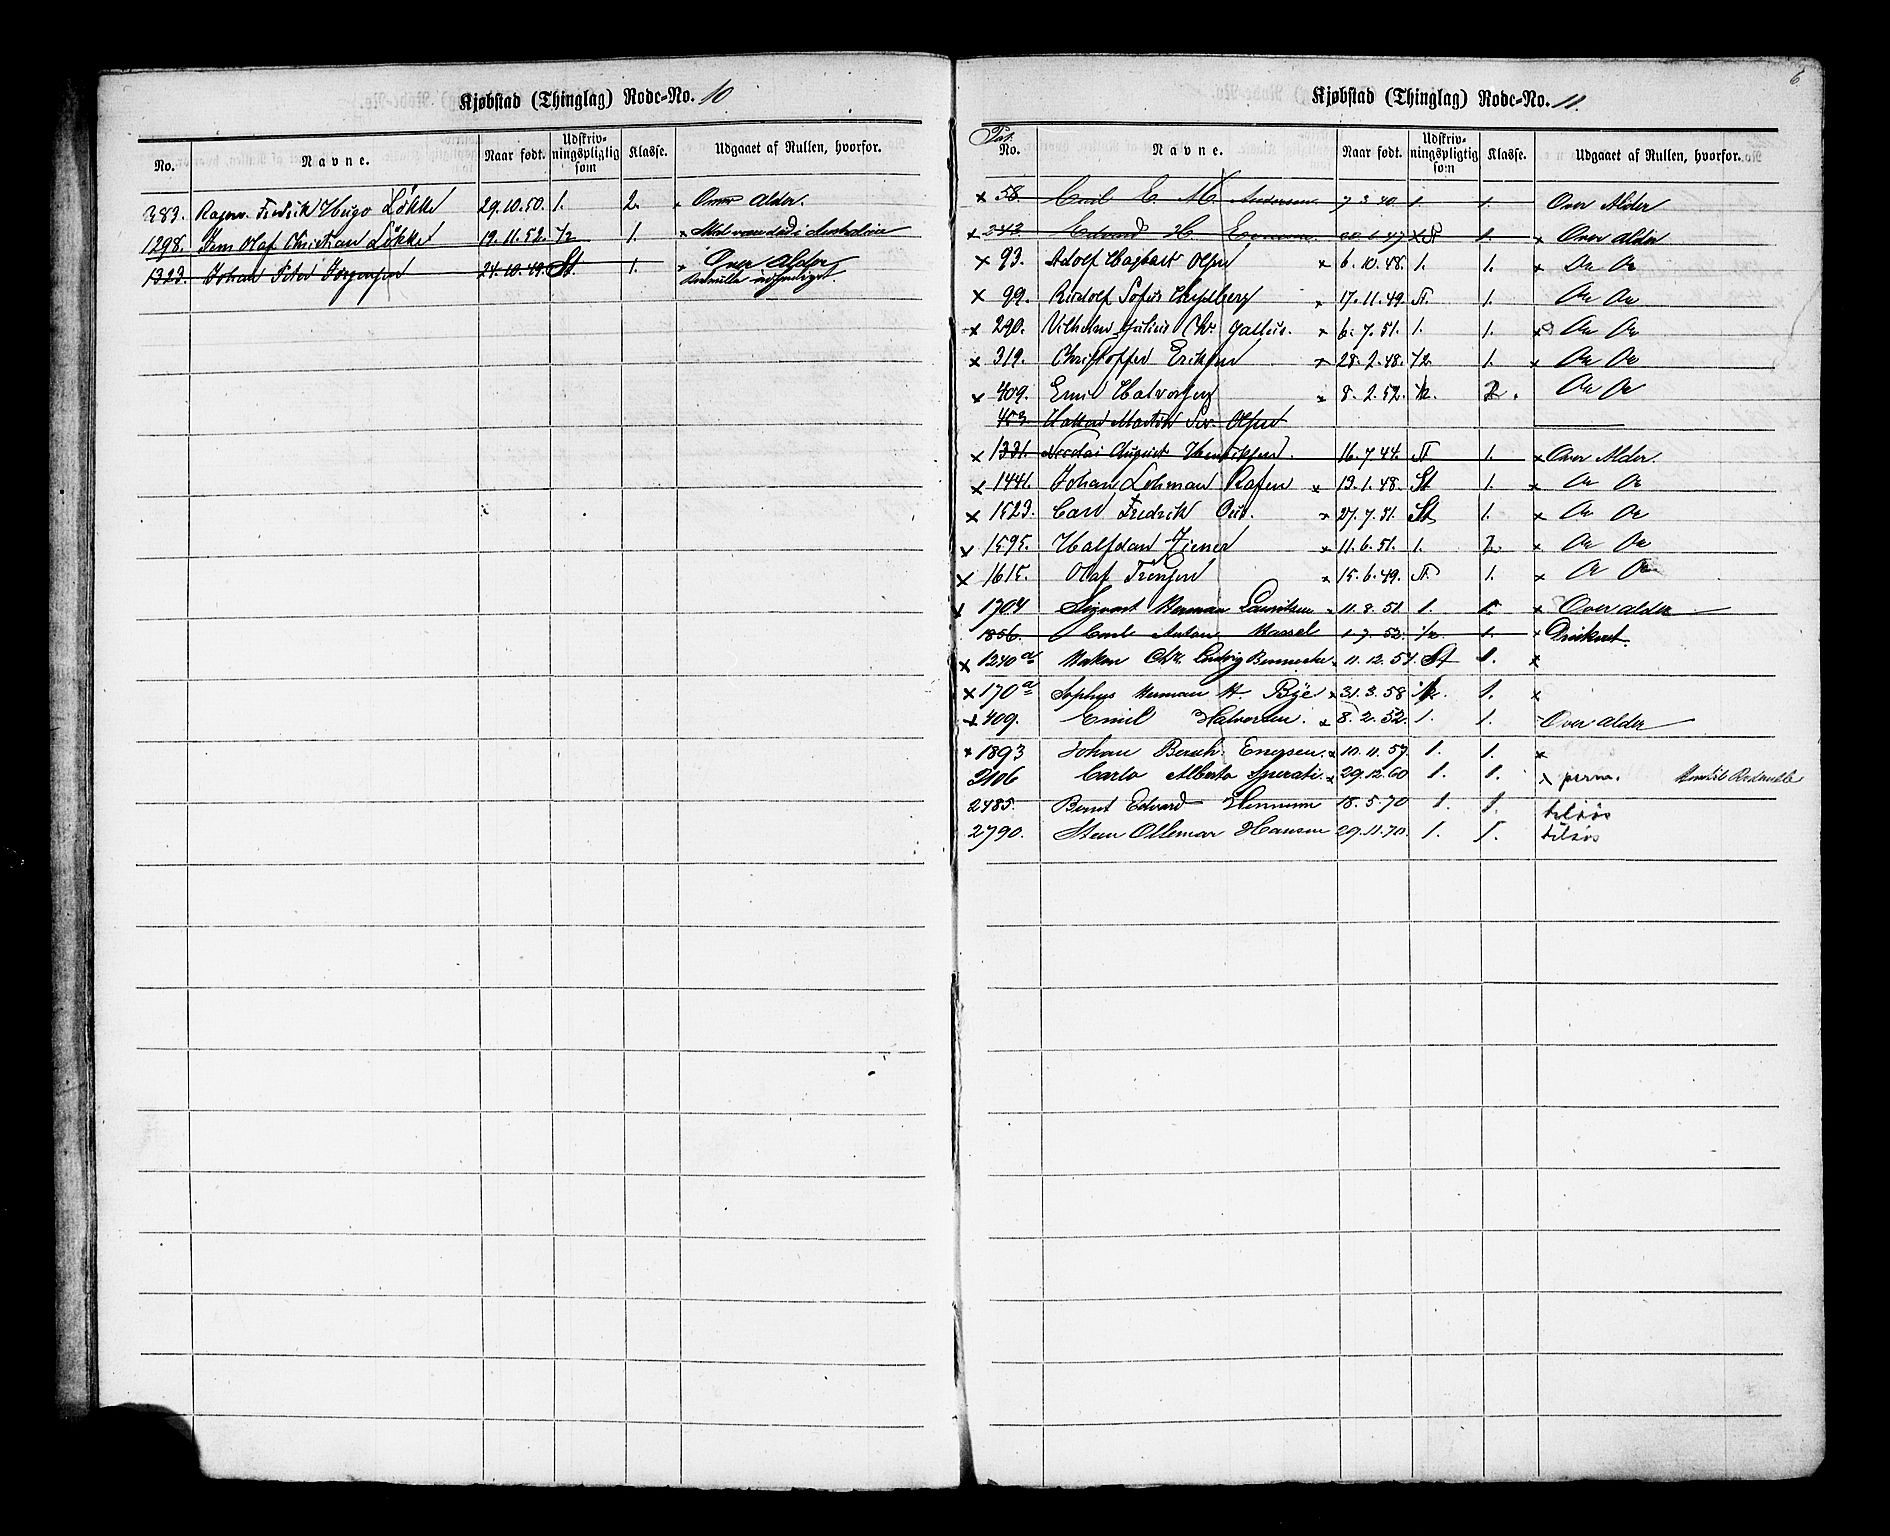 Kjøbstad (Thinglag) Rode-No. 10
No. Navne. Naar født. Udskrivningspligtig som Klasse. Udgaaet af Rullen, hvorfor.
383. Fredrik Hugo Løkke 29.10.50. 1. 2. Over Alder.
1298. Jens Olaf Christian Løkke 19.11.52. 1/2 1. x
1323. Johan Peter Jørgensen 24.10.49. St. 1. x Over Alder
6
Kjøbstad (Thinglag) Rode-No. 11.
Pat. No. Navne. Naar født. Udskrivningspligtig som Klasse. Udgaaet af Rullen, hvorfor.
x 58. Emil E M Andersen 7 3 40 1. 1. Over Alder
x 242. Edvard H. St 1. x Over Alder
x 93. Adolf Hagbart Olsen x 6.10.48. 1. 1. x Do Do
x 99. Rudolf Sofus x 17.11.49. St. 1. Do Do
x 290. Vilhelm Julius Chr. x 6.7.51. 1. 1. x Do Do
x 319. Christoffer Eriksen x 28.2.48. 1/2 1. x Do Do
x 409. Emil Halvorsen x 8.2.52. 1/2. 2. Do Do
453. Martin Olsen
x 1331. Nicolai August Henriksen. 16.7.44. St 1. x Over Alder.
x 1441. Johan Lohman x 19.1.48. St 1. x Do Do
x 1523. Carl Fredrik x 27.7.51. St 1. x Do Do
x 1595. Halfdan Ziener x 11.6.51. 1. 2. x Do Do
x 1615. Olaf x 15.6.49. St. 1. x Do Do
x 1704 Sigvart Herman Lauritsen 11.8.51. 1. 1. x Over alder
1856. Carl Anton Hassel 1.7.52. 1/2. 1. x Druknet.
x 1240 a Hakon Chr. Ludvig 11.12.57. St 1. x
x 170 a Sophus Herman H. Bye x 31.3.58 1/2. 1. x
x 409. Emil Halvorsen. x 8.2.52. 1. 1. Over alder
x 1893 Johan Bernh. x 10.11.57. 1. 1. x
2106 Carlo Alberto Sperati x 29.12.60 1. 1. x perm.
2485. Bernt Edvard Hennum 18.5.70 1. 1. tilsøs
2790. Sten Ottemar Hansen 29.11.70. 1. 1. tilsøs